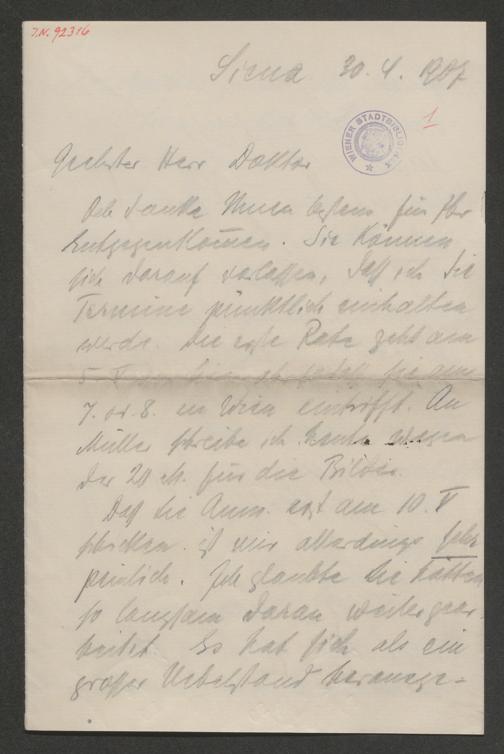 J.N. 92316
Siena 30. 4. 1907
WIENER STADTBIBLIOTHEK
1
Geehrter Herr Doktor
Ich danke Ihnen bestens für Ihr
Entgegenkommen. Sie können
sich darauf verlassen, daß ich die
Termine pünktlich einhalten
werde. Die erste Rate geht am
5. V von hier ab sodaß sie am
7. od. 8. in Wien eintrifft. An
Müller schreibe ich heute wegen
der 20 M. für die Bilder.
Daß Sie die erst am 10. V
schicken ist mir allerdings sehr
peinlich. Ich glaubte Sie hätten
so langsam daran weitergear-
beitet. Es hat sich als ein
großer Uebelstand herausge-